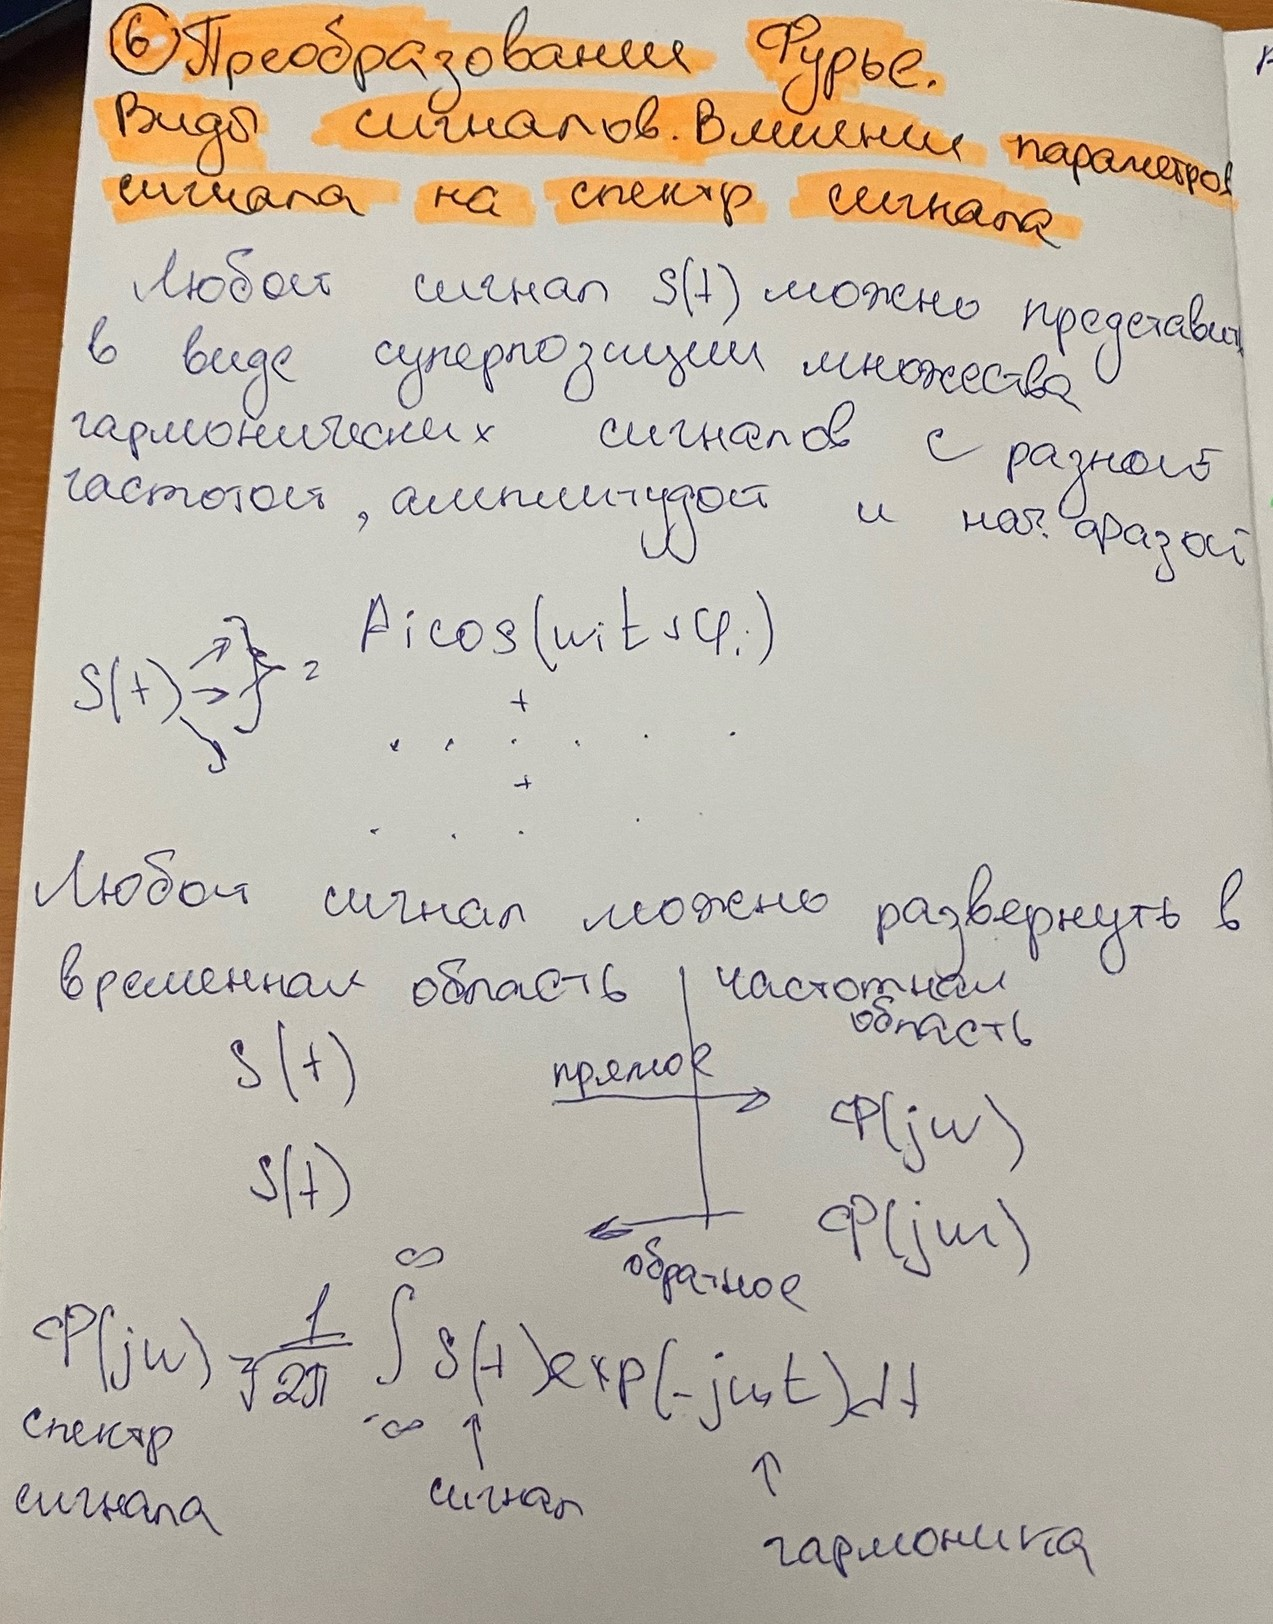 ⑥ Преобразовании Фурье.
Виды сигналов. Влиении параметров
сигнала на спектр сигнала
Любой сигнал S(t) можно представить
в виде суперпозиции множества
гармонических сигналов с разной
частотой, амплитудой и нач. фазой
S(t) → → → } = Aicos(wit+φi)
+
. . . . . .
+
. . . .
Любой сигнал можно развернуть в
временная область | частотная
область
S(t) прямое → Ф(jw)
S(t) ← Ф(jw)
обратное
Ф(jw) = 1/√2π ∫ from -∞ to ∞ S(t)exp(-jwt)dt
спектр
сигнала ↑ сигнал ↑ гармоника